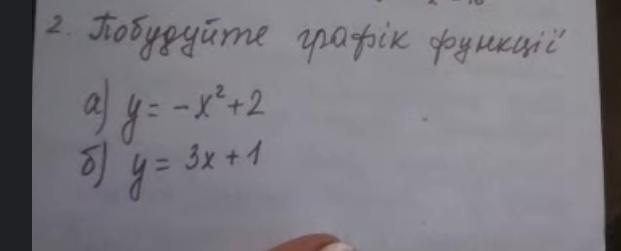 2. Побудуйте графік функції
а) y = -x²+2
б) y = 3x+1